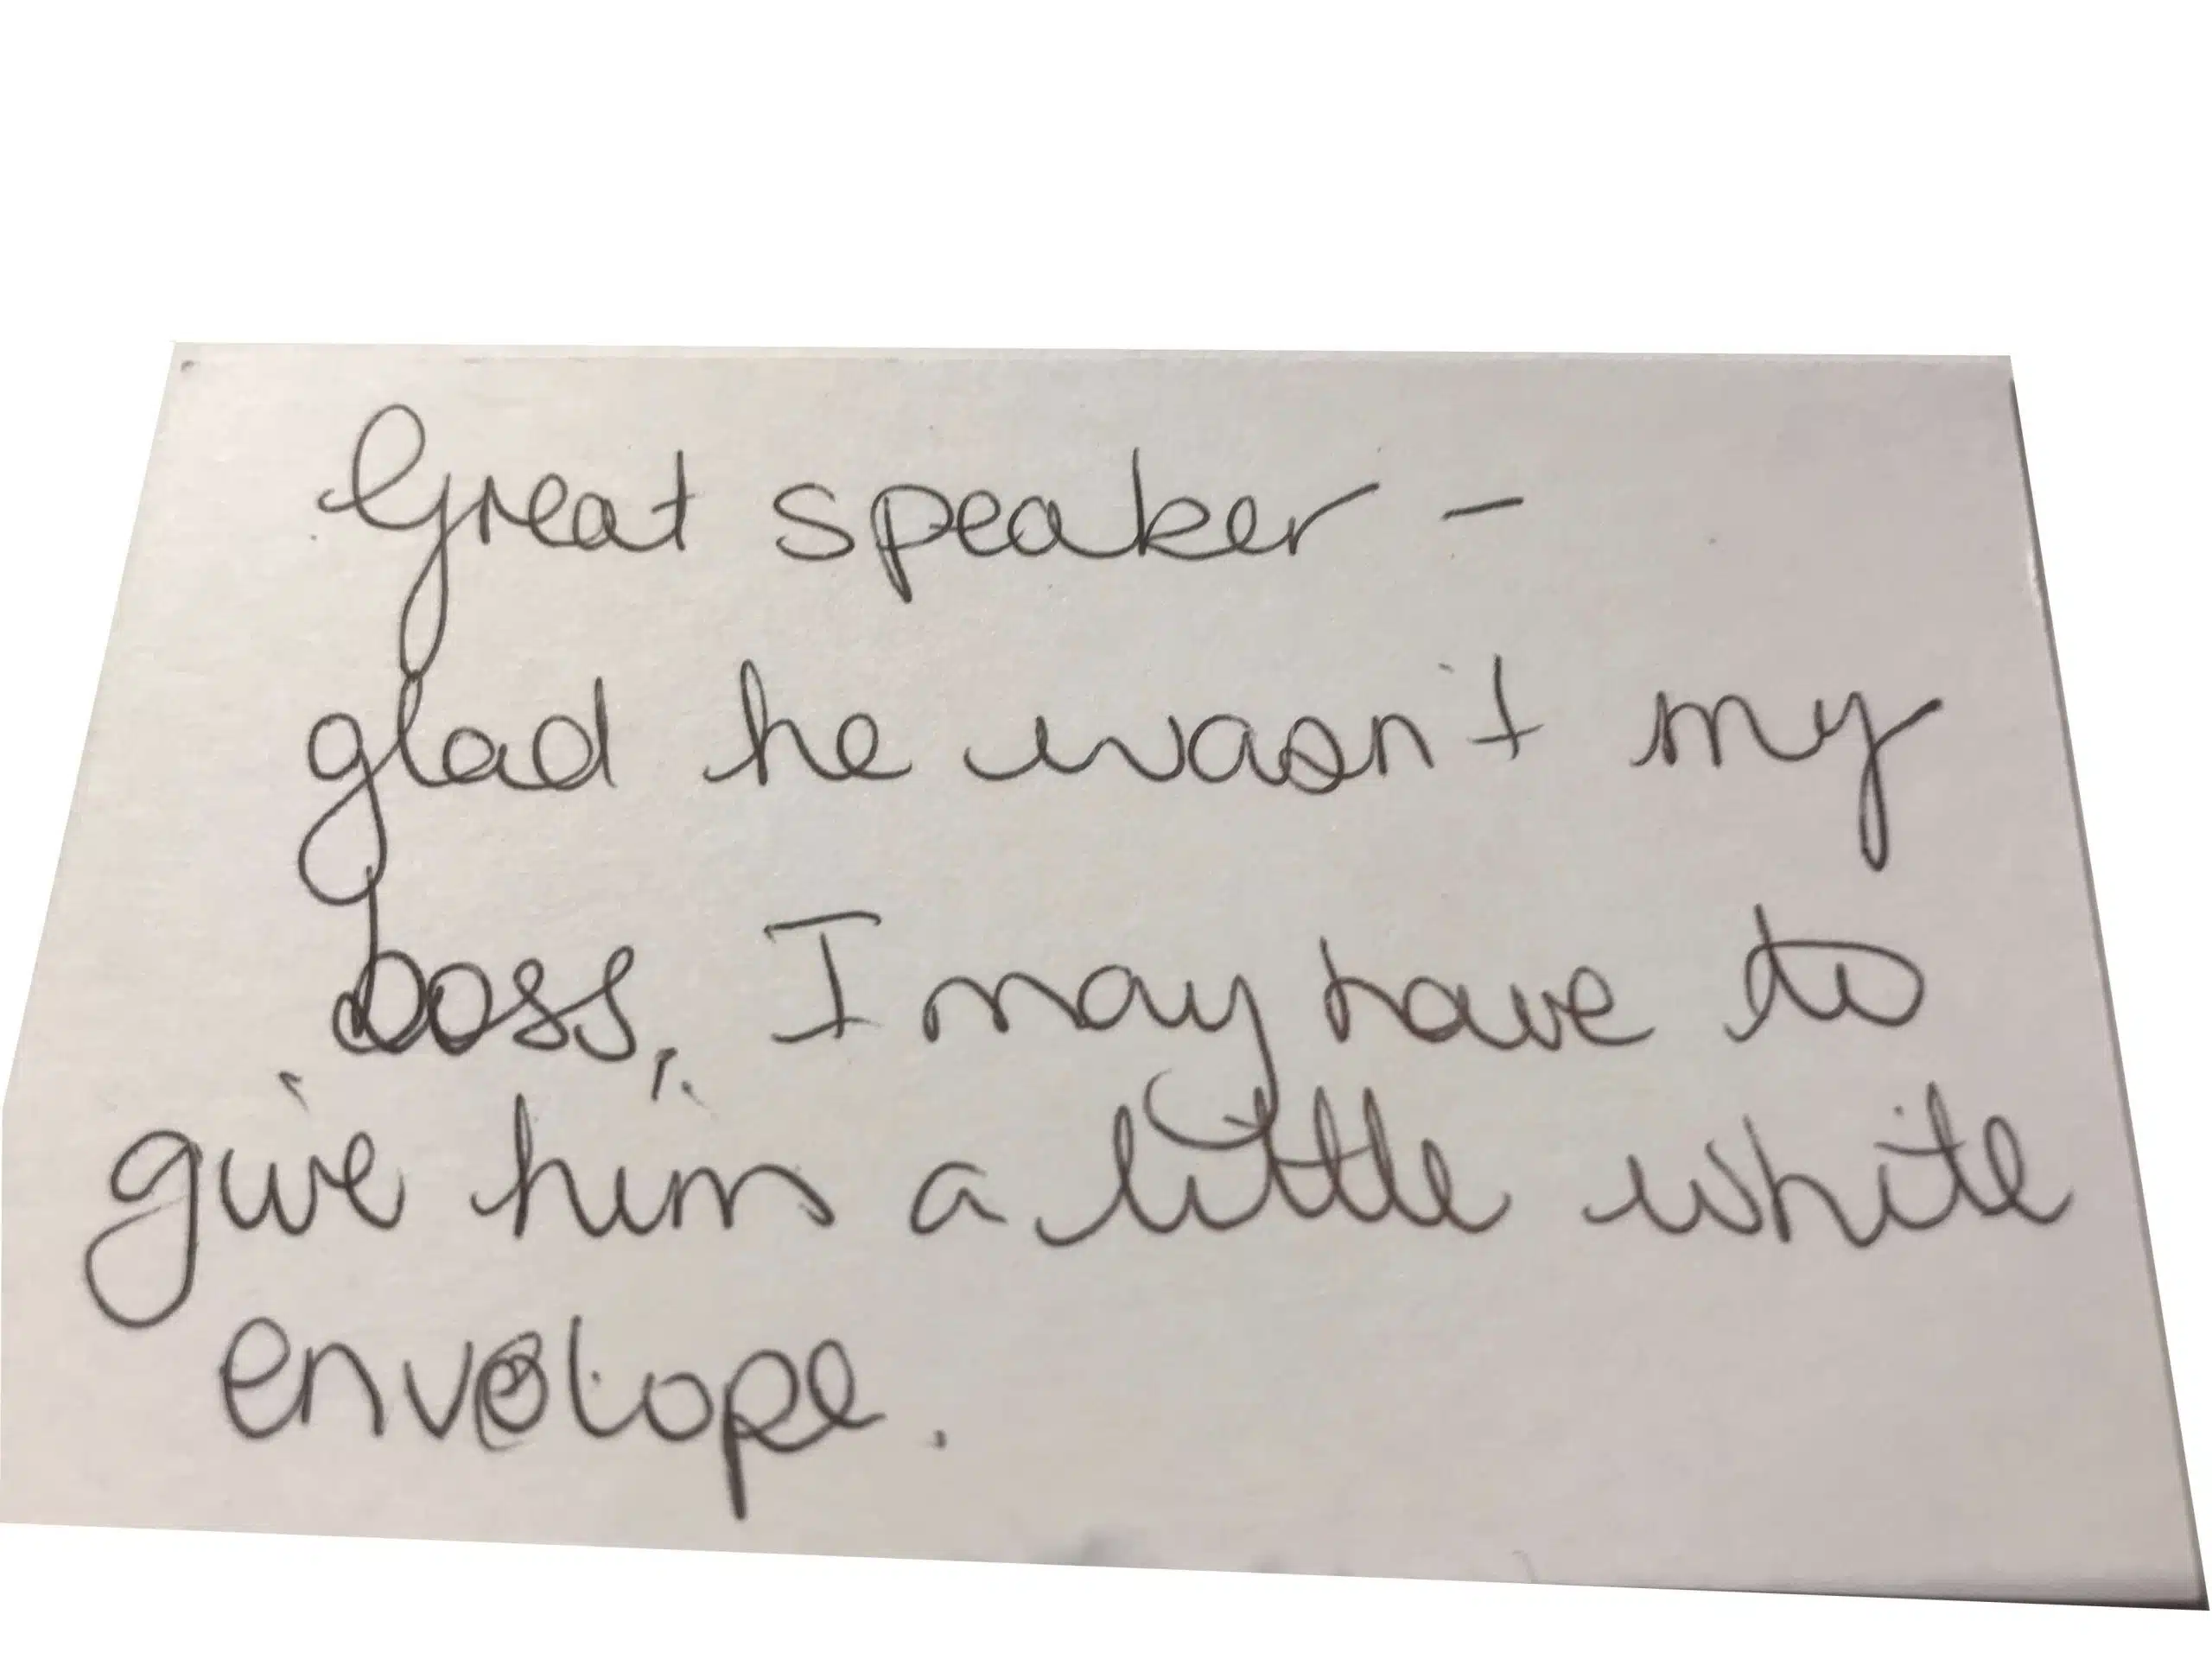 Great speaker -
glad he wasn't my
boss, I may have to
give him a little white
envelope.